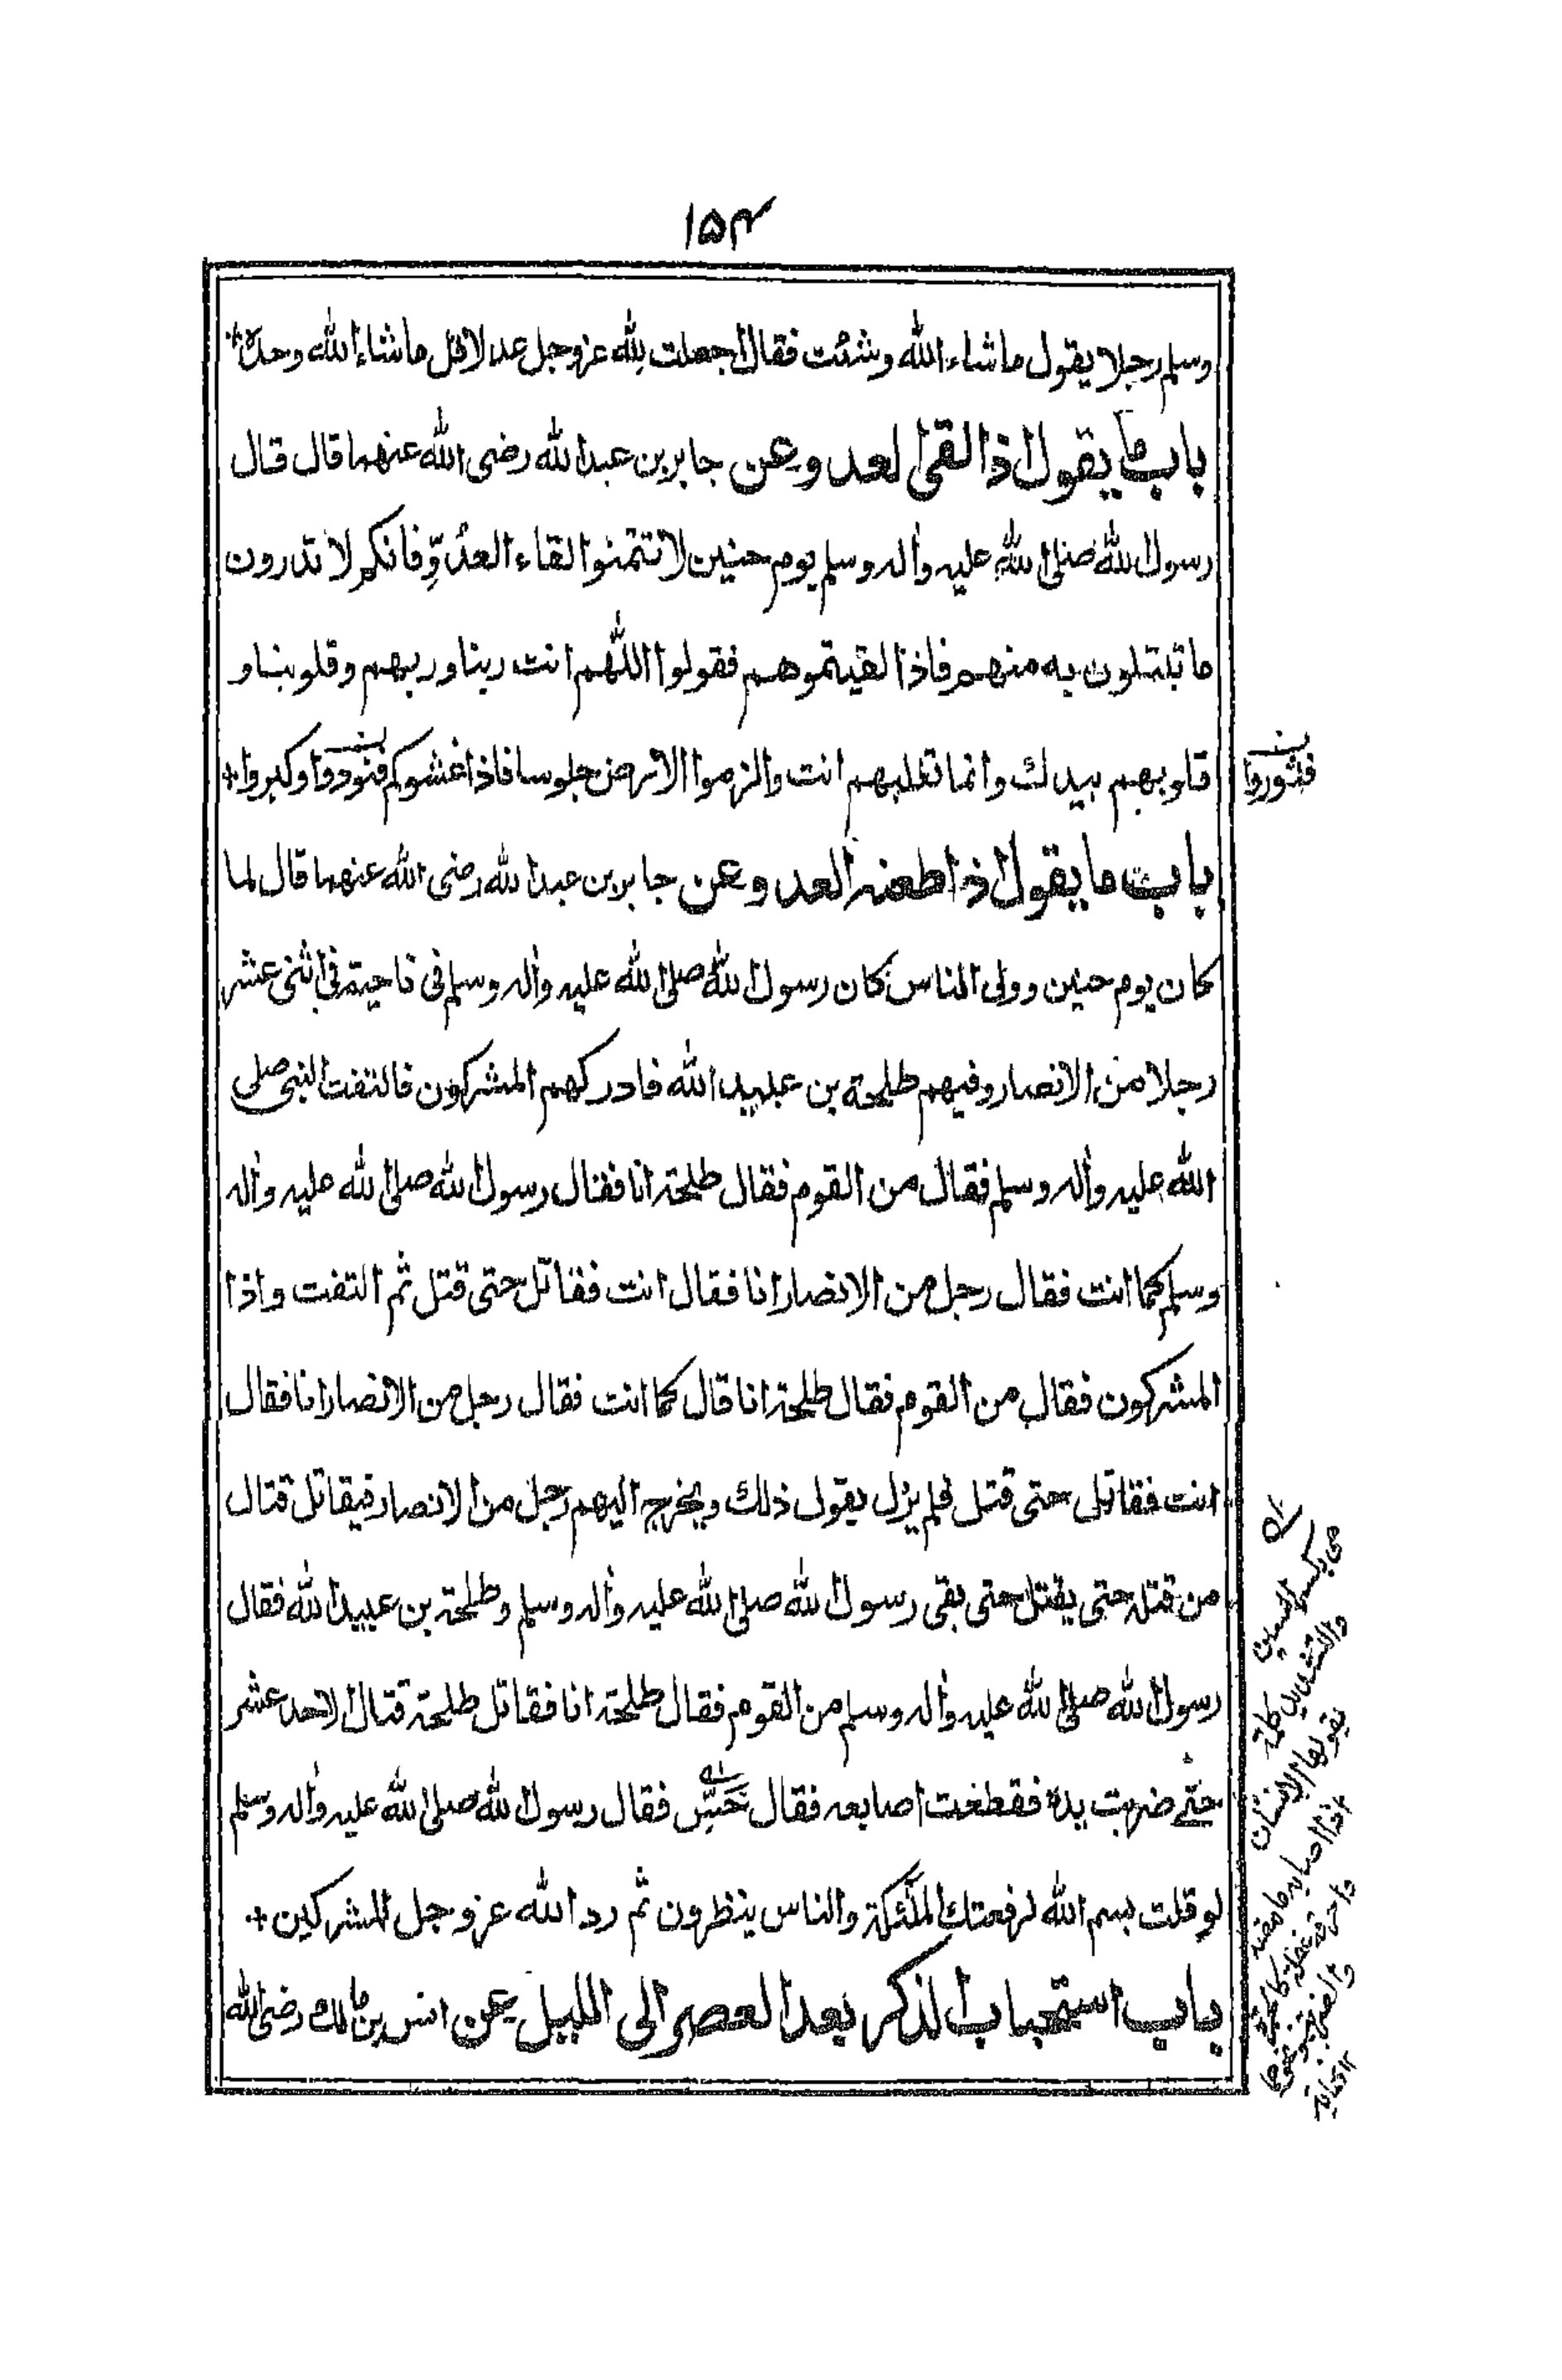 ۱۵۴
وسلم رجلا يقول ماشاء الله وشئت فقال اجعلت لله عزوجل عدلا قل ماشاء الله وحده
باب ما يقول اذا لقى العدو وعن جابر بن عبد الله رضى الله عنهما قال قال
رسول الله صلى الله عليه واله وسلم يوم حنين لا تتمنوا لقاء العدوّ فانكم لا تدرون
ما تبتلون به منهم فاذا لقيتموهم فقولوا اللهم انت ربنا وربهم وقلوبنا و
قلوبهم بيدك وانما تغلبهم انت والزموا الارض جلوسا فاذا غشوكم فثوروا وكبروا +
فثوروا
باب ما يقول اذا طعنه العدو وعن جابر بن عبد الله رضى الله عنهما قال لما
كان يوم حنين وولى الناس كان رسول الله صلى الله عليه واله وسلم فى ناحية فى اثنى عشر
رجلا من الانصار وفيهم طلحة بن عبيد الله فادركهم المشركون فالتفت النبى صلى
الله عليه واله وسلم فقال من القوم فقال طلحة انا فقال رسول الله صلى الله عليه واله
وسلم كما انت فقال رجل من الانصار انا فقال انت فقاتل حتى قتل ثم التفت واذا
المشركون فقال من القوم فقال طلحة انا قال كما انت فقال رجل من الانصار انا فقال
انت فقاتل حتى قتل فلم يزل يقول ذلك ويخرج اليهم رجل من الانصار فيقاتل قتال
من قتله حتى يقتل حتى بقى رسول الله صلى الله عليه واله وسلم وطلحة بن عبيد الله فقال
رسول الله صلى الله عليه واله وسلم من القوم فقال طلحة انا فقاتل طلحة قتال الاحد عشر
حتى ضربت يده فقطعت اصابعه فقال حَسِّ فقال رسول الله صلى الله عليه واله وسلم
لو قلت بسم الله لرفعتك الملئكة والناس ينظرون ثم رد الله عزوجل المشركين +
باب استحباب الذكر بعد العصر الى الليل عن انس بن مالك رضى الله
هى بكسر السين
والتشديد كلمة
يقولها الانسان
اذا اصابه ما مضه
واحرقه غفلة كالجمرة
والضربة ونحوها
نهاية